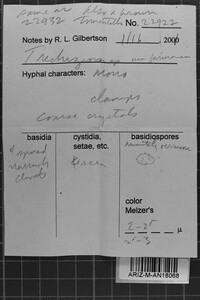 same as also a brown
22932 No. 22922
Notes by R. L. Gilbertson 1/16 2000
Trechispora sp
Hyphal characters: Mono
clamps
coarse crystals
basidia cystidia, setae, etc. basidiospores
4 spored
narrowly
clavate
none
minutely verrucose
color
Melzer's
2-2.5
2.5-3 µ
ARIZ-M-AN18068